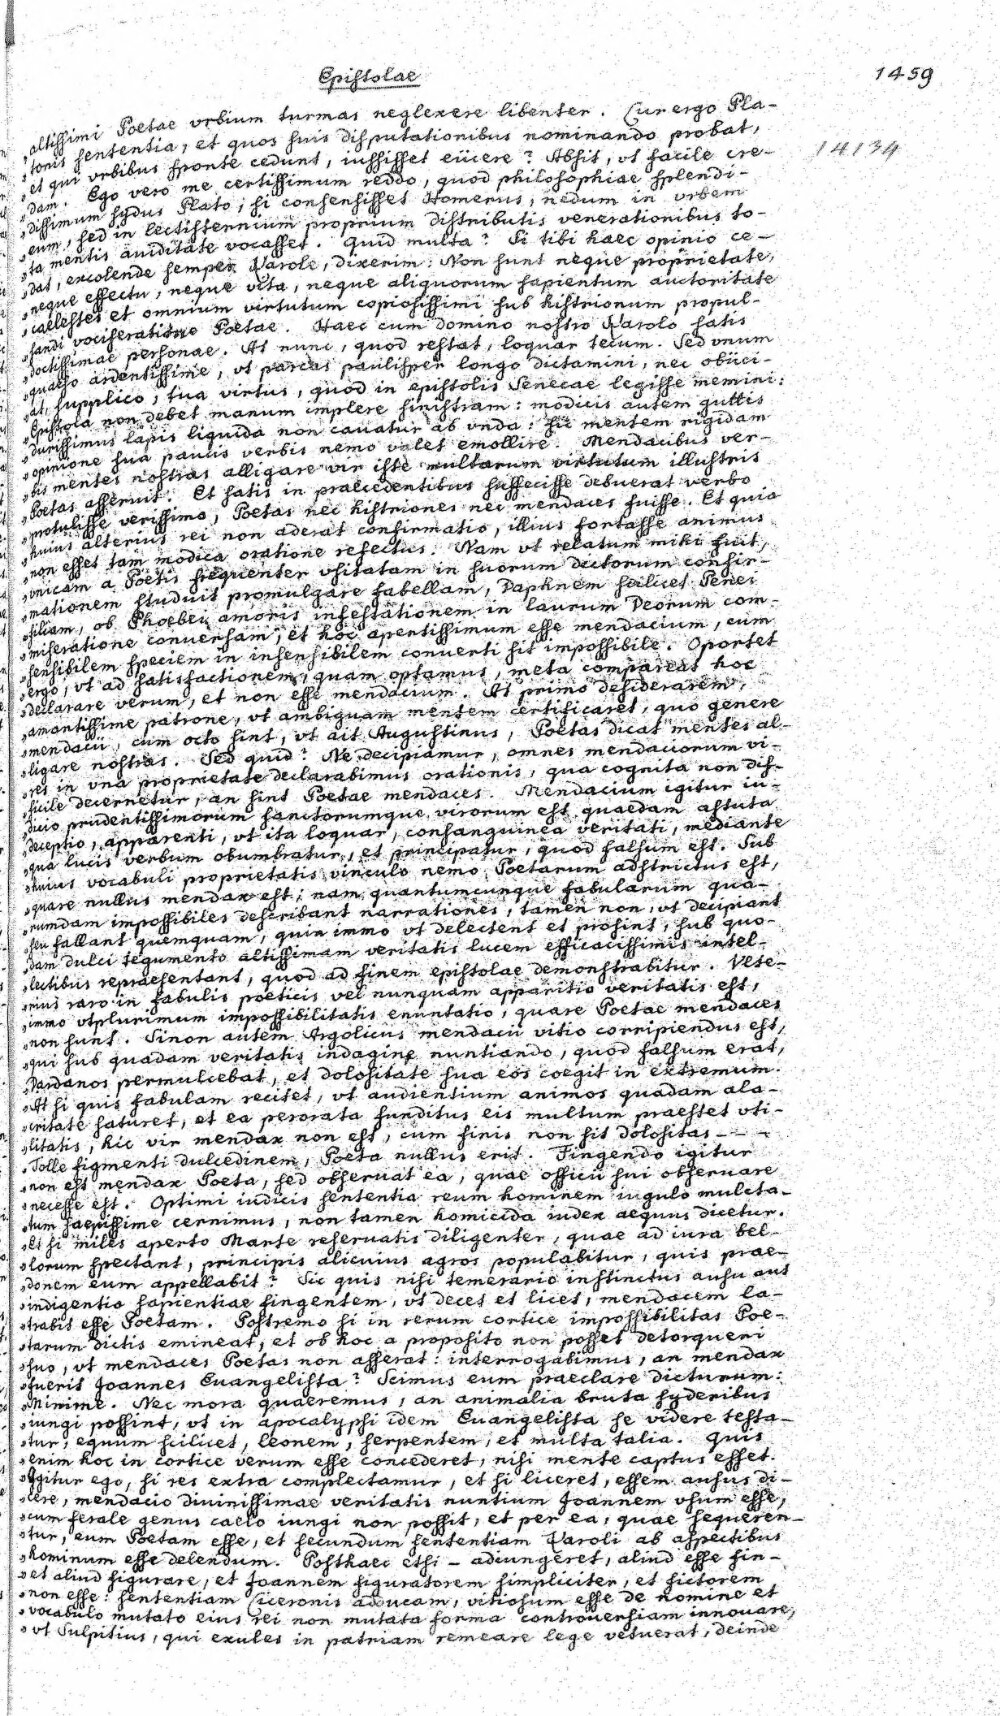 Epistolae 1459
„altissimi Poetae vrbium turmas neglexere libenter. Cur ergo Pla-
„tonis sententia, et quos suis disputationibus nominando probat,
„et qui vrbibus sponte cedunt, iussisset eiicere? Absit, vt facile cre- 14134
„dam. Ego vero me certissimum reddo, quod philosophiae splendi-
„dissimum sydus Plato, si consensisset Homerus, nedum in vrbem
„eum, sed in lectisternium proprium distributis venerationibus to-
„ta mentis auiditate vocasset. Quid multa? Si tibi haec opinio ce-
„dat, excolende semper Karole, dixerim: Non sunt neque proprietate,
„neque effectu, neque vita, neque aliquorum sapientum auctoritate
„caelestes et omnium virtutum copiosissimi sub histrionum propul-
„sandi vociferatione Poetae. Haec cum domino nostro Karolo satis
„doctissimae personae. At nunc, quod restat, loquar tecum. Sed vnum
„quaeso ardentissime, vt parcas paulisper longo dictamini, nec obiici-
„at, supplico, tua virtus, quod in epistolis Senecae legisse memini:
„Epistola non debet manum implere sinistram: modicis autem guttis
„durissimus lapis liquida non cauatur ab vnda: sic mentem rigidam
„opinione sua paucis verbis nemo valet emollire. Mendacibus ver-
„bis mentes nostras alligare vir iste multarum virtutum illustris
„Poetas asseruit. Et satis in praecedentibus suffecisse debuerat verbo
„protulisse verissimo, Poetas nec histriones nec mendaces fuisse. Et quia
„huius alterius rei non aderat confirmatio, illius fortasse animus
„non esset tam modica oratione refectus. Nam vt relatum mihi fuit,
„vnicam a Poetis frequenter vsitatam in suorum dictorum confir-
„mationem studuit promulgare fabellam, Daphnem scilicet Penei
„filiam, ob Phoebei amoris infestationem in laurum Deorum com-
„miseratione conuersam, et hoc apertissimum esse mendacium, cum
„sensibilem speciem in insensibilem conuerti sit impossibile. Oportet
„ergo, vt ad satisfactionem, quam optamus, meta compareat hoc
„declarare verum, et non esse mendacium. At primo desiderarem,
„amantissime patrone, vt ambiguam mentem certificaret, quo genere
„mendacii, cum octo sint, vt ait Augustinus, Poetas dicat mentes al-
„ligare nostras. Sed quid? Ne decipiamur, omnes mendaciorum vi-
„res in vna proprietate declarabimus orationis, qua cognita non dif-
„ficile decernetur, an sint Poetae mendaces. Mendacium igitur iu-
„dicio prudentissimorum sanctorumque virorum est quaedam astuta
„deceptio, apparenti, vt ita loquar, consanguinea veritati, mediante
„qua lucis verbum obumbratur, et principatur, quod falsum est. Sub
„huius vocabuli proprietatis vinculo nemo Poetarum adstrictus est,
„quare nullus mendax est; nam quantumcunque fabularum qua-
„rumdam impossibiles describant narrationes, tamen non, vt decipiant
„seu fallant quemquam, quin immo vt delectent et prosint, sub quo-
„dam dulci tegumento altissimam veritatis lucem efficacissimis intel-
„lectibus repraesentant, quod ad finem epistolae demonstrabitur. Vete-
„rius raro in fabulis poeticis vel nunquam apparitio veritatis est,
„immo vtplurimum impossibilitatis enuntatio, quare Poetae mendaces
„non sunt. Sinon autem Argolicus mendacii vitio corripiendus est,
„qui sub quadam veritatis indagine nuntiando, quod falsum erat,
„Dardanos permulcebat, et dolositate sua eos coegit in extremum.
„At si quis fabulam recitet, vt audientium animos quadam ala-
„critate saturet, et ea perorata funditus eis multum praestet vti-
„litatis, hic vir mendax non est, cum finis non sit dolositas - - -
„Tolle figmenti dulcedinem, Poeta nullus erit. Fingendo igitur
„non est mendax Poeta, sed obseruat ea, quae officii sui obseruare
„necesse est. Optimi iudicis sententia reum hominem iugulo mulcta-
„tum saepissime cernimus, non tamen homicida iudex aequus dicetur.
„Et si miles aperto Marte reseruatis diligenter, quae ad iura bel-
„lorum spectant, principis alicuius agros populabitur, quis prae-
„donem eum appellabit? Sic quis nisi temerario instinctus ausu aut
„indigentia sapientiae fingentem, vt decet et licet, mendacem la-
„trabit esse Poetam. Postremo si in rerum cortice impossibilitas Poe-
„tarum dictis emineat, et ob hoc a proposito non posset detorqueri
„suo, vt mendaces Poetas non asserat: interrogabimus, an mendax
„fuerit Joannes Euangelista? Scimus eum praeclare dicturum:
„Minime. Nec mora quaeremus, an animalia bruta syderibus
„iungi possint, vt in apocalypsi idem Euangelista se videre testa-
„tur, equum scilicet, leonem, serpentem, et multa talia. Quis
„enim hoc in cortice verum esse concederet, nisi mente captus esset.
„Igitur ego, si res extra complectamur, et si liceret, essem ausus di-
„cere, mendacio diuinissimae veritatis nuntium Joannem vsum esse,
„cum ferale genus caelo iungi non possit, et per ea, quae sequeren-
„tur, eum Poetam esse, et secundum sententiam Karoli ab aspectibus
„hominum esse delendum. Posthaec etsi - adiungeret, aliud esse fin-
„et aliud figurare, et Joannem figuratorem simpliciter, et fictorem
„non esse: sententiam Ciceronis aducam, vitiosum esse de nomine et
„vocabulo mutato eius rei non mutata forma controuersiam innouare,
„vt Sulpitius, qui exules in patriam remeare lege vetuerat, deinde